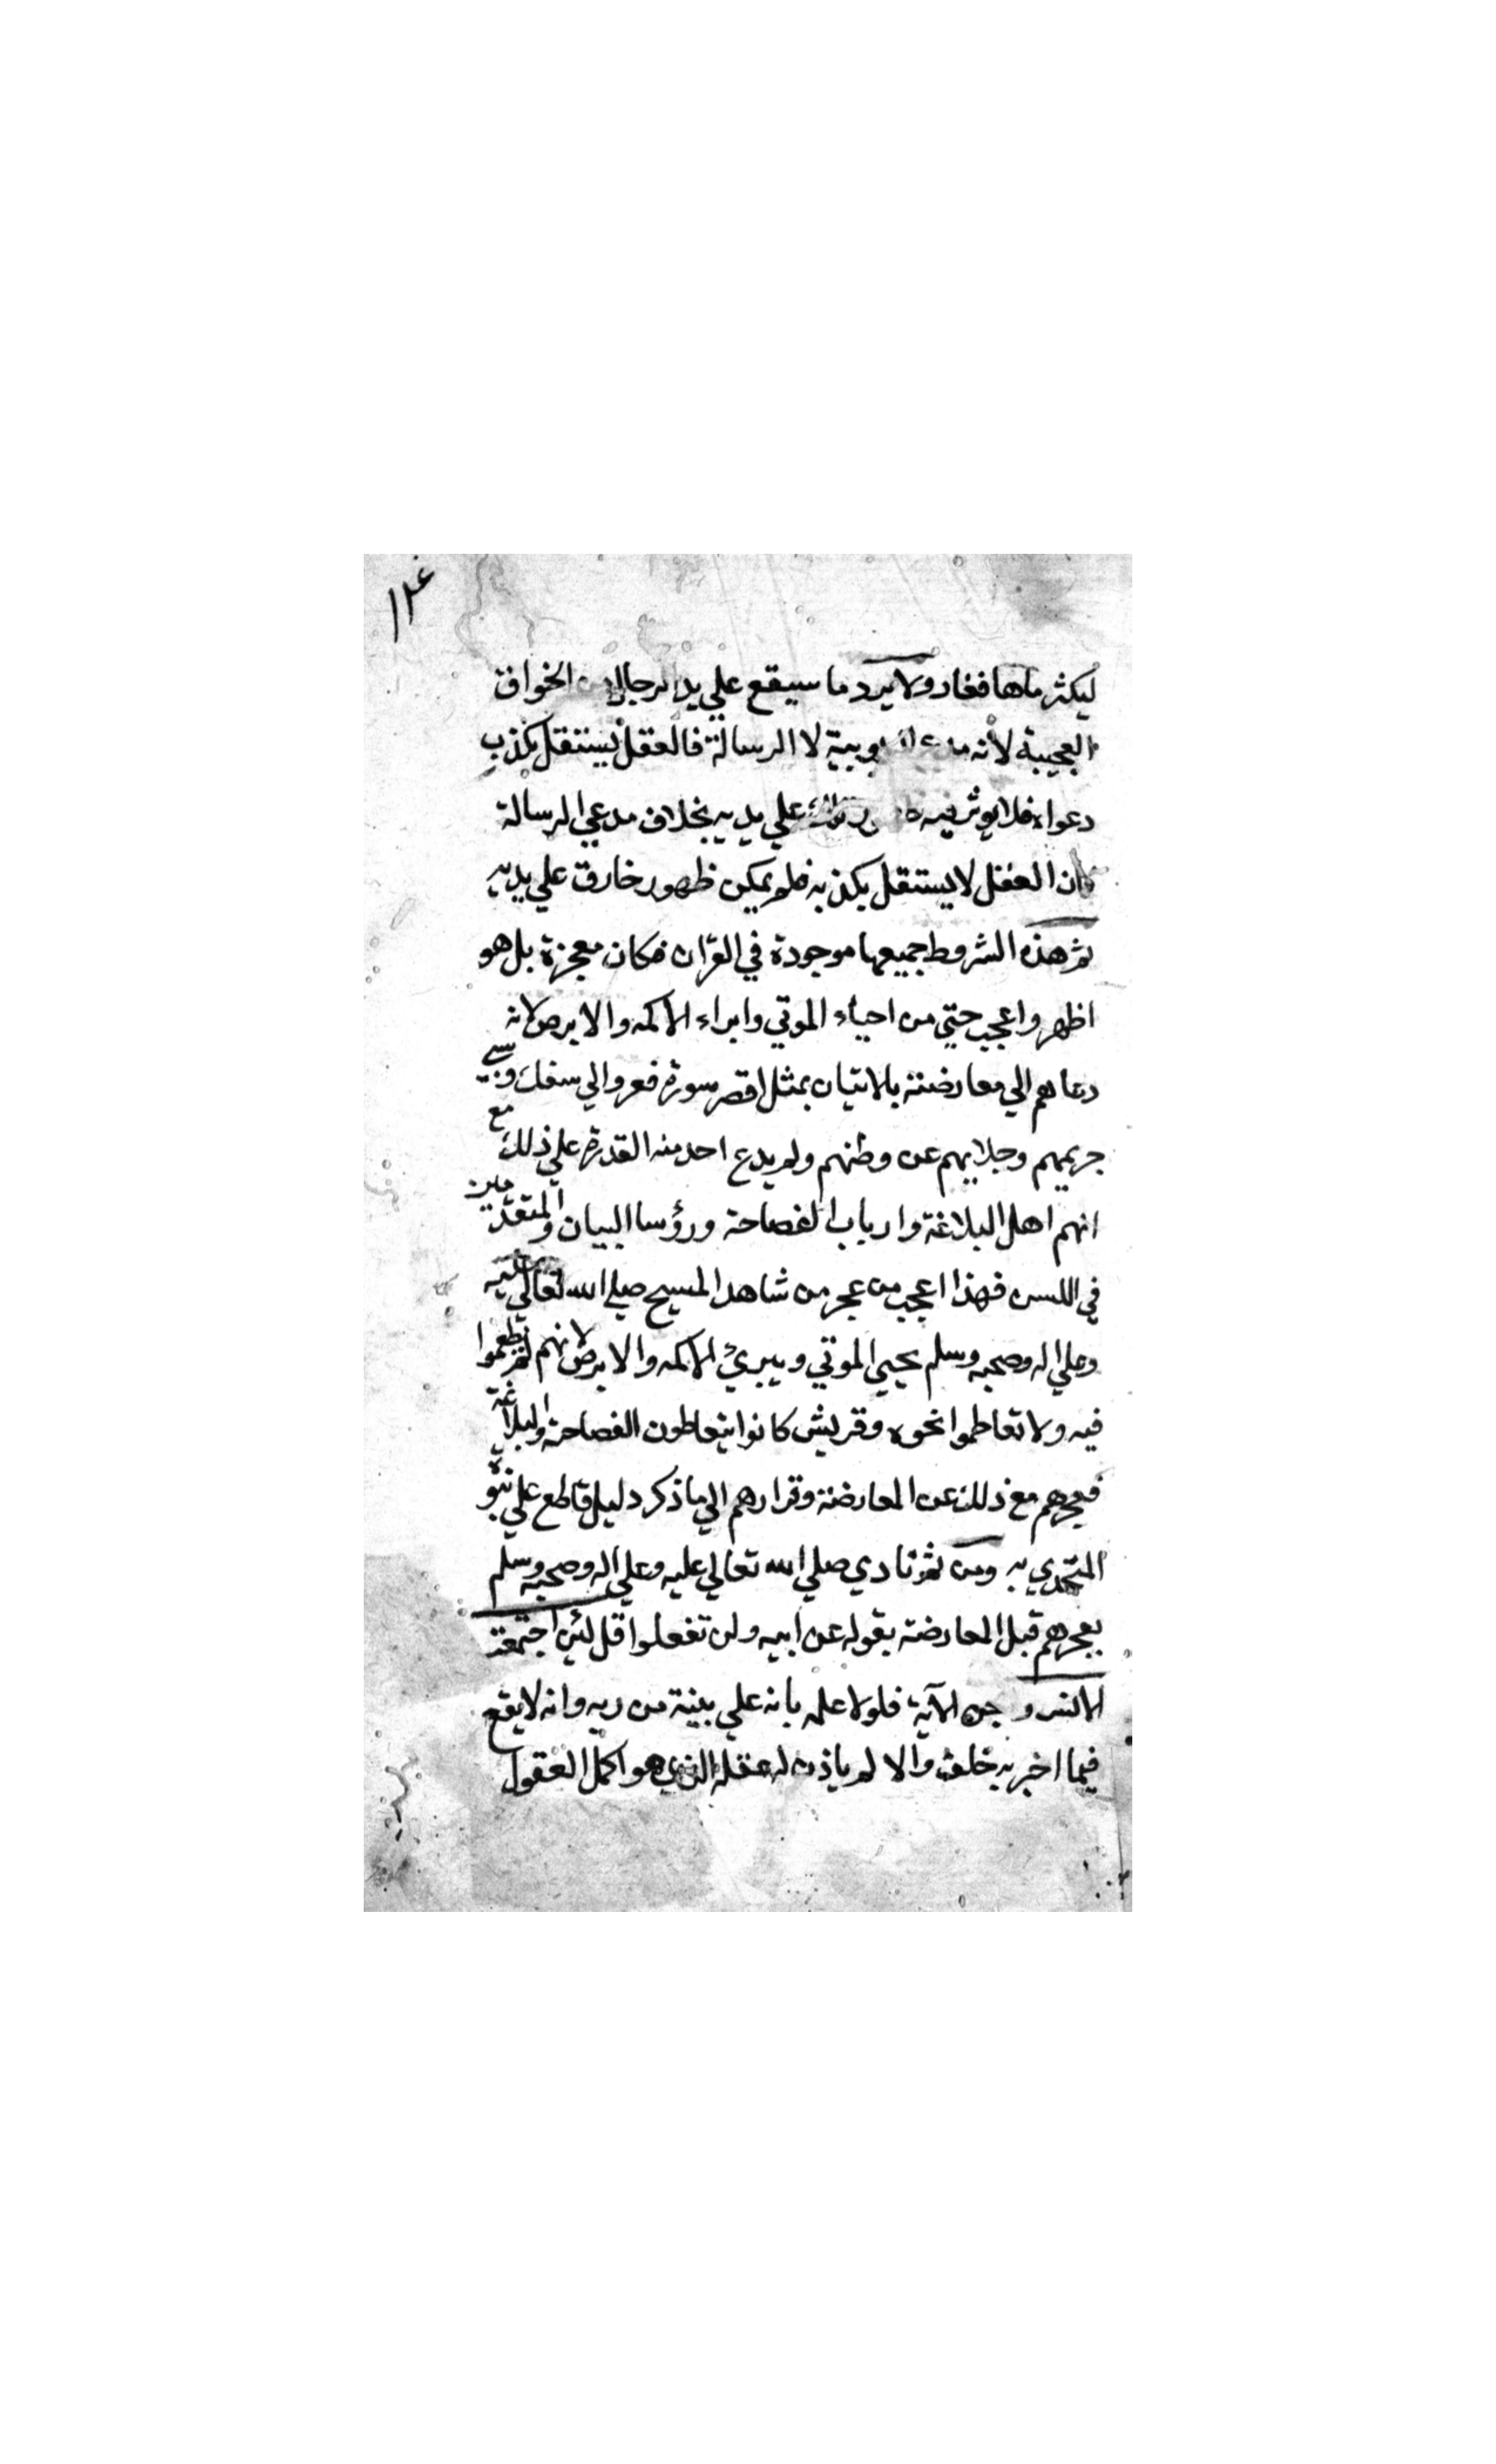 ١٢٤
ليكثر ماها فغار ولا يرد ما سيقع علي يد الدجال من الخوارق
العجيبة لأنه مدعي الربوبية لا الرسالة فالعقل يستقل بكذب
دعواه فلا يوثر فيه ظهور ذلك علي يديه بخلاف مدعي الرسالة
فان العقل لا يستقل بكذبه فلم يمكن ظهور خارق علي يديه
ثم هذه الشروط جميعها موجودة في القرآن فكان معجزة بل هو
اظهر واعجب حتي من احياء الموتي وابراء الاكمه والابرص لانه
دعاهم الي معارضته بالاتيان بمثل اقصر سورة ففروا الي سفك وسبي
حريمهم وجلايهم عن وطنهم ولم يدع احد منه القدرة علي ذلك مع
انهم اهل البلاغة وارباب الفصاحة ورؤسا البيان والمتقدمين
في اللسن فهذا اعجب من عجز من شاهد المسيح صلي الله تعالي عليه
وعلي اله وصحبه وسلم يحيي الموتي ويبرئ الاكمه والابرص لانهم لم يطمعوا
فيه ولا تعاطموا نحوه وقريش كانوا يتعاطون الفصاحة والبلاغة
فعجزهم مع ذلك عن المعارضة وقرارهم الي ما ذكر دليل قاطع علي نبوة
المتحدي به ومن ثم نادي صلي الله تعالي عليه وعلي اله وصحبه وسلم
بعجزهم قبل المعارضة بقوله عن ابيه ولن تفعلوا قل لئن اجتمعت
الانس و جن الآية فلولا علمه بانه علي بينة من ربه وانه لا يقع
فيما اخبر به خلف والا لم ياذن له عقله الذي هو اكمل العقول